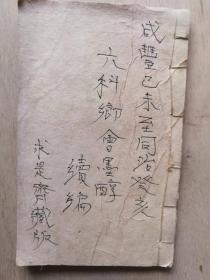 咸豐己未至同治癸亥
六科鄉會墨醇
續編
求是齋藏版